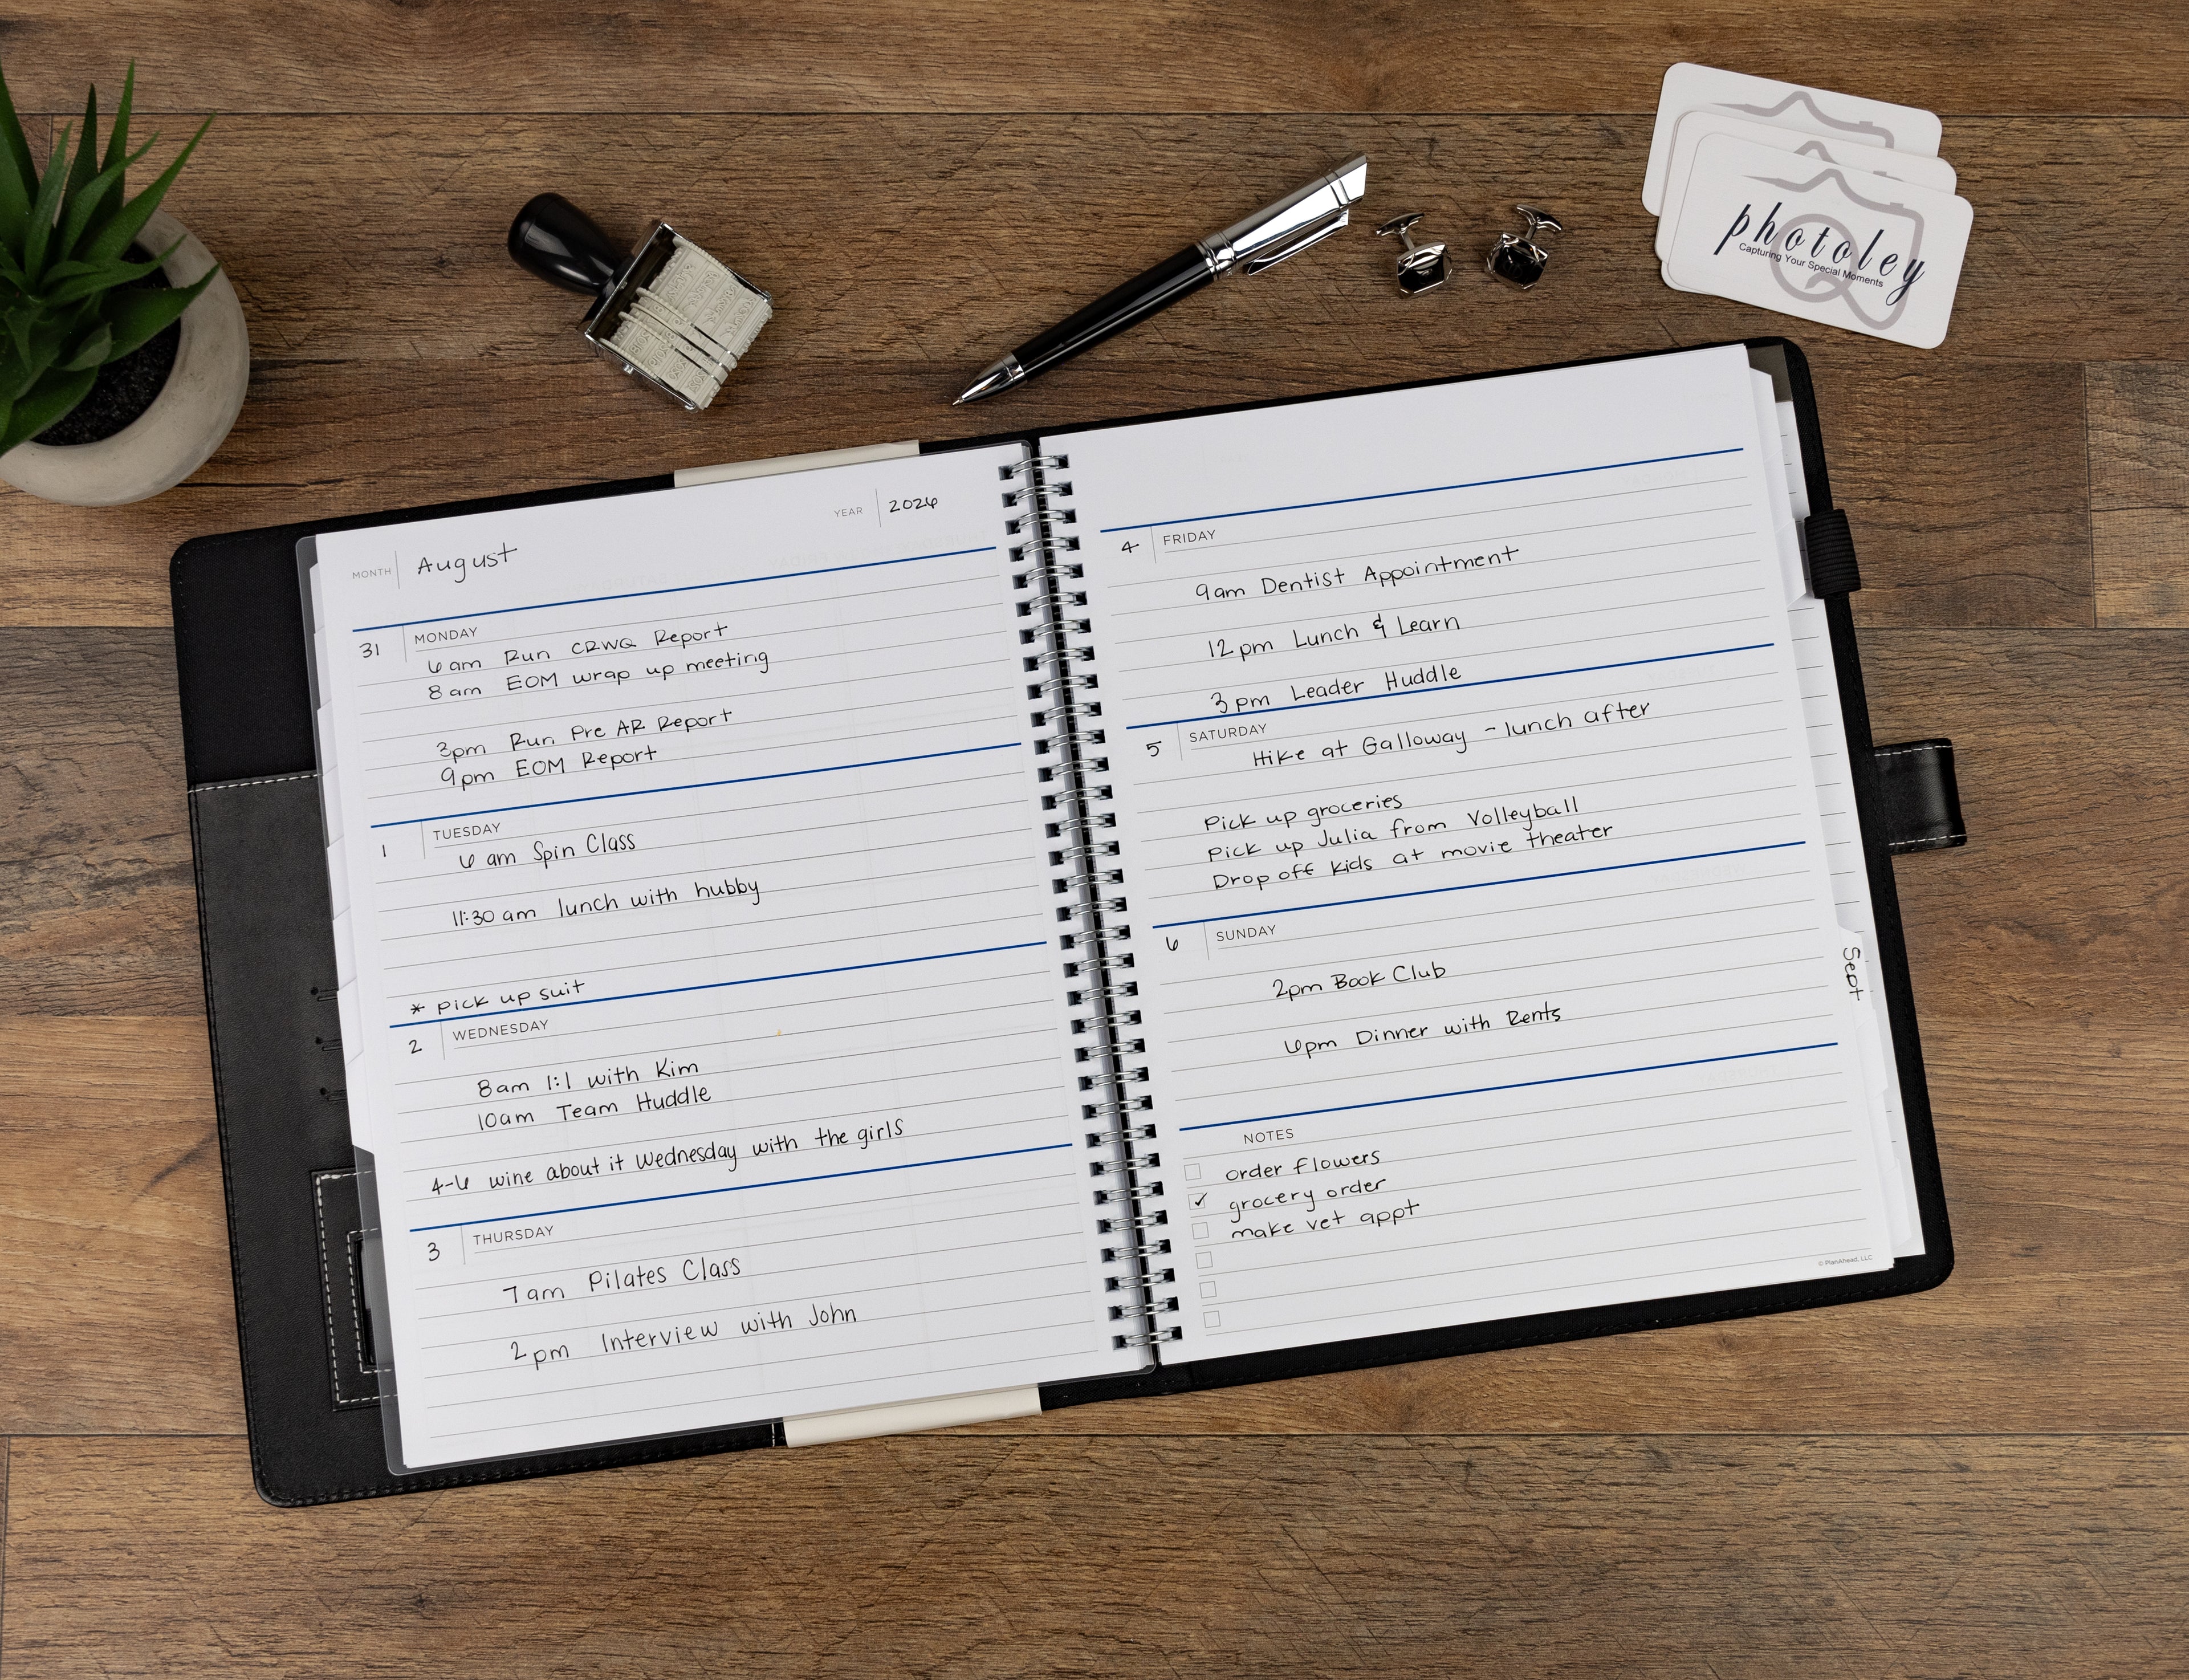 photoley
Capturing Your Special Moments
MONTH August
YEAR 2026
31 MONDAY
6am Run CRWQ Report
8am EOM wrap up meeting
3pm Run Pre AR Report
9pm EOM Report
1 TUESDAY
6 am Spin Class
11:30 am lunch with hubby
* pick up suit
2 WEDNESDAY
8am 1:1 with Kim
10am Team Huddle
4-6 wine about it Wednesday with the girls
3 THURSDAY
7am Pilates Class
2pm Interview with John
4 FRIDAY
9am Dentist Appointment
12pm Lunch & Learn
3pm Leader Huddle
5 SATURDAY
Hike at Galloway - lunch after
Pick up groceries
Pick up Julia from Volleyball
Drop off kids at movie theater
6 SUNDAY
2pm Book Club
6pm Dinner with Rents
NOTES
order flowers
✓ grocery order
make vet appt
© PlanAhead, LLC
Sept